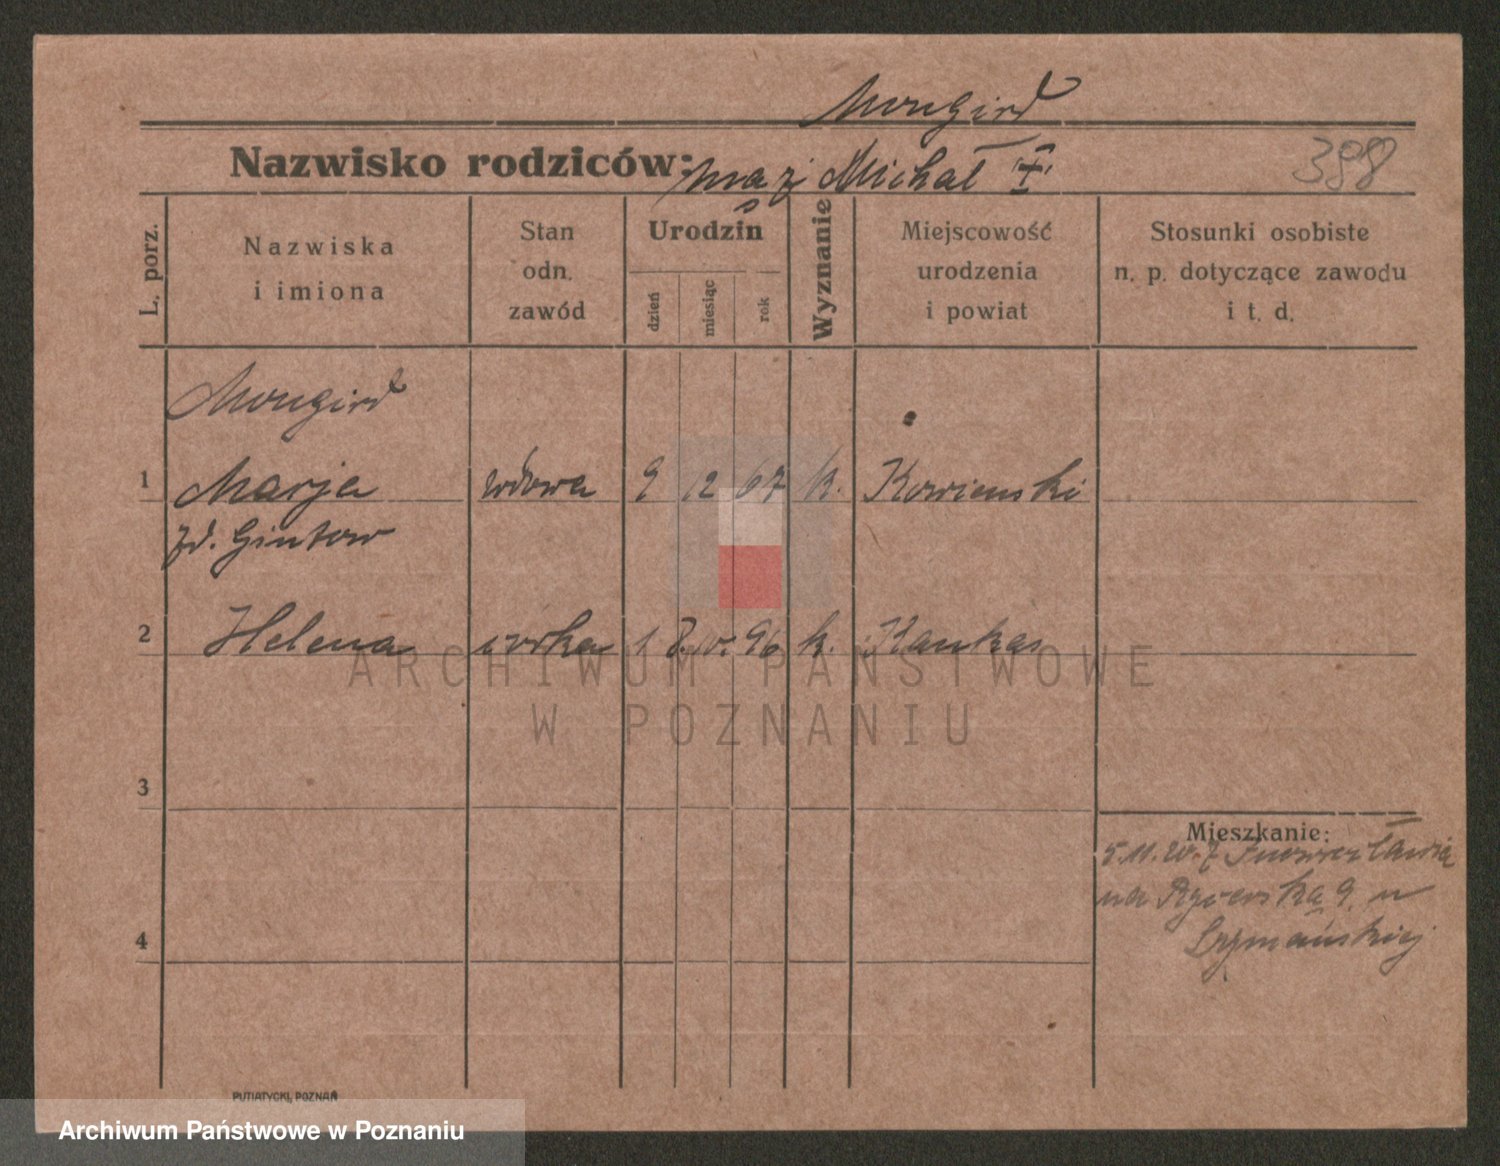 Mongird
Nazwisko rodziców: mąż Michał
388
L. porz.
Nazwiska
i imiona
Stan
odn.
zawód
Urodzin
dzień
miesiąc
rok
Wyznanie
Miejscowość
urodzenia
i powiat
Stosunki osobiste
n. p. dotyczące zawodu
i t. d.
Mongird
1 Marja wdowa 9 12 67 k. Kowienski
zd. Gintow
2 Helena córka 18. 10. 96 k. Kaukas
ARCHIWUM PAŃSTWOWE
W POZNANIU
3
Mieszkanie:
5.11.20. z Inowrocławia
na 9. u
Szymańskiej
4
PUTIATYCKI, POZNAŃ
Archiwum Państwowe w Poznaniu